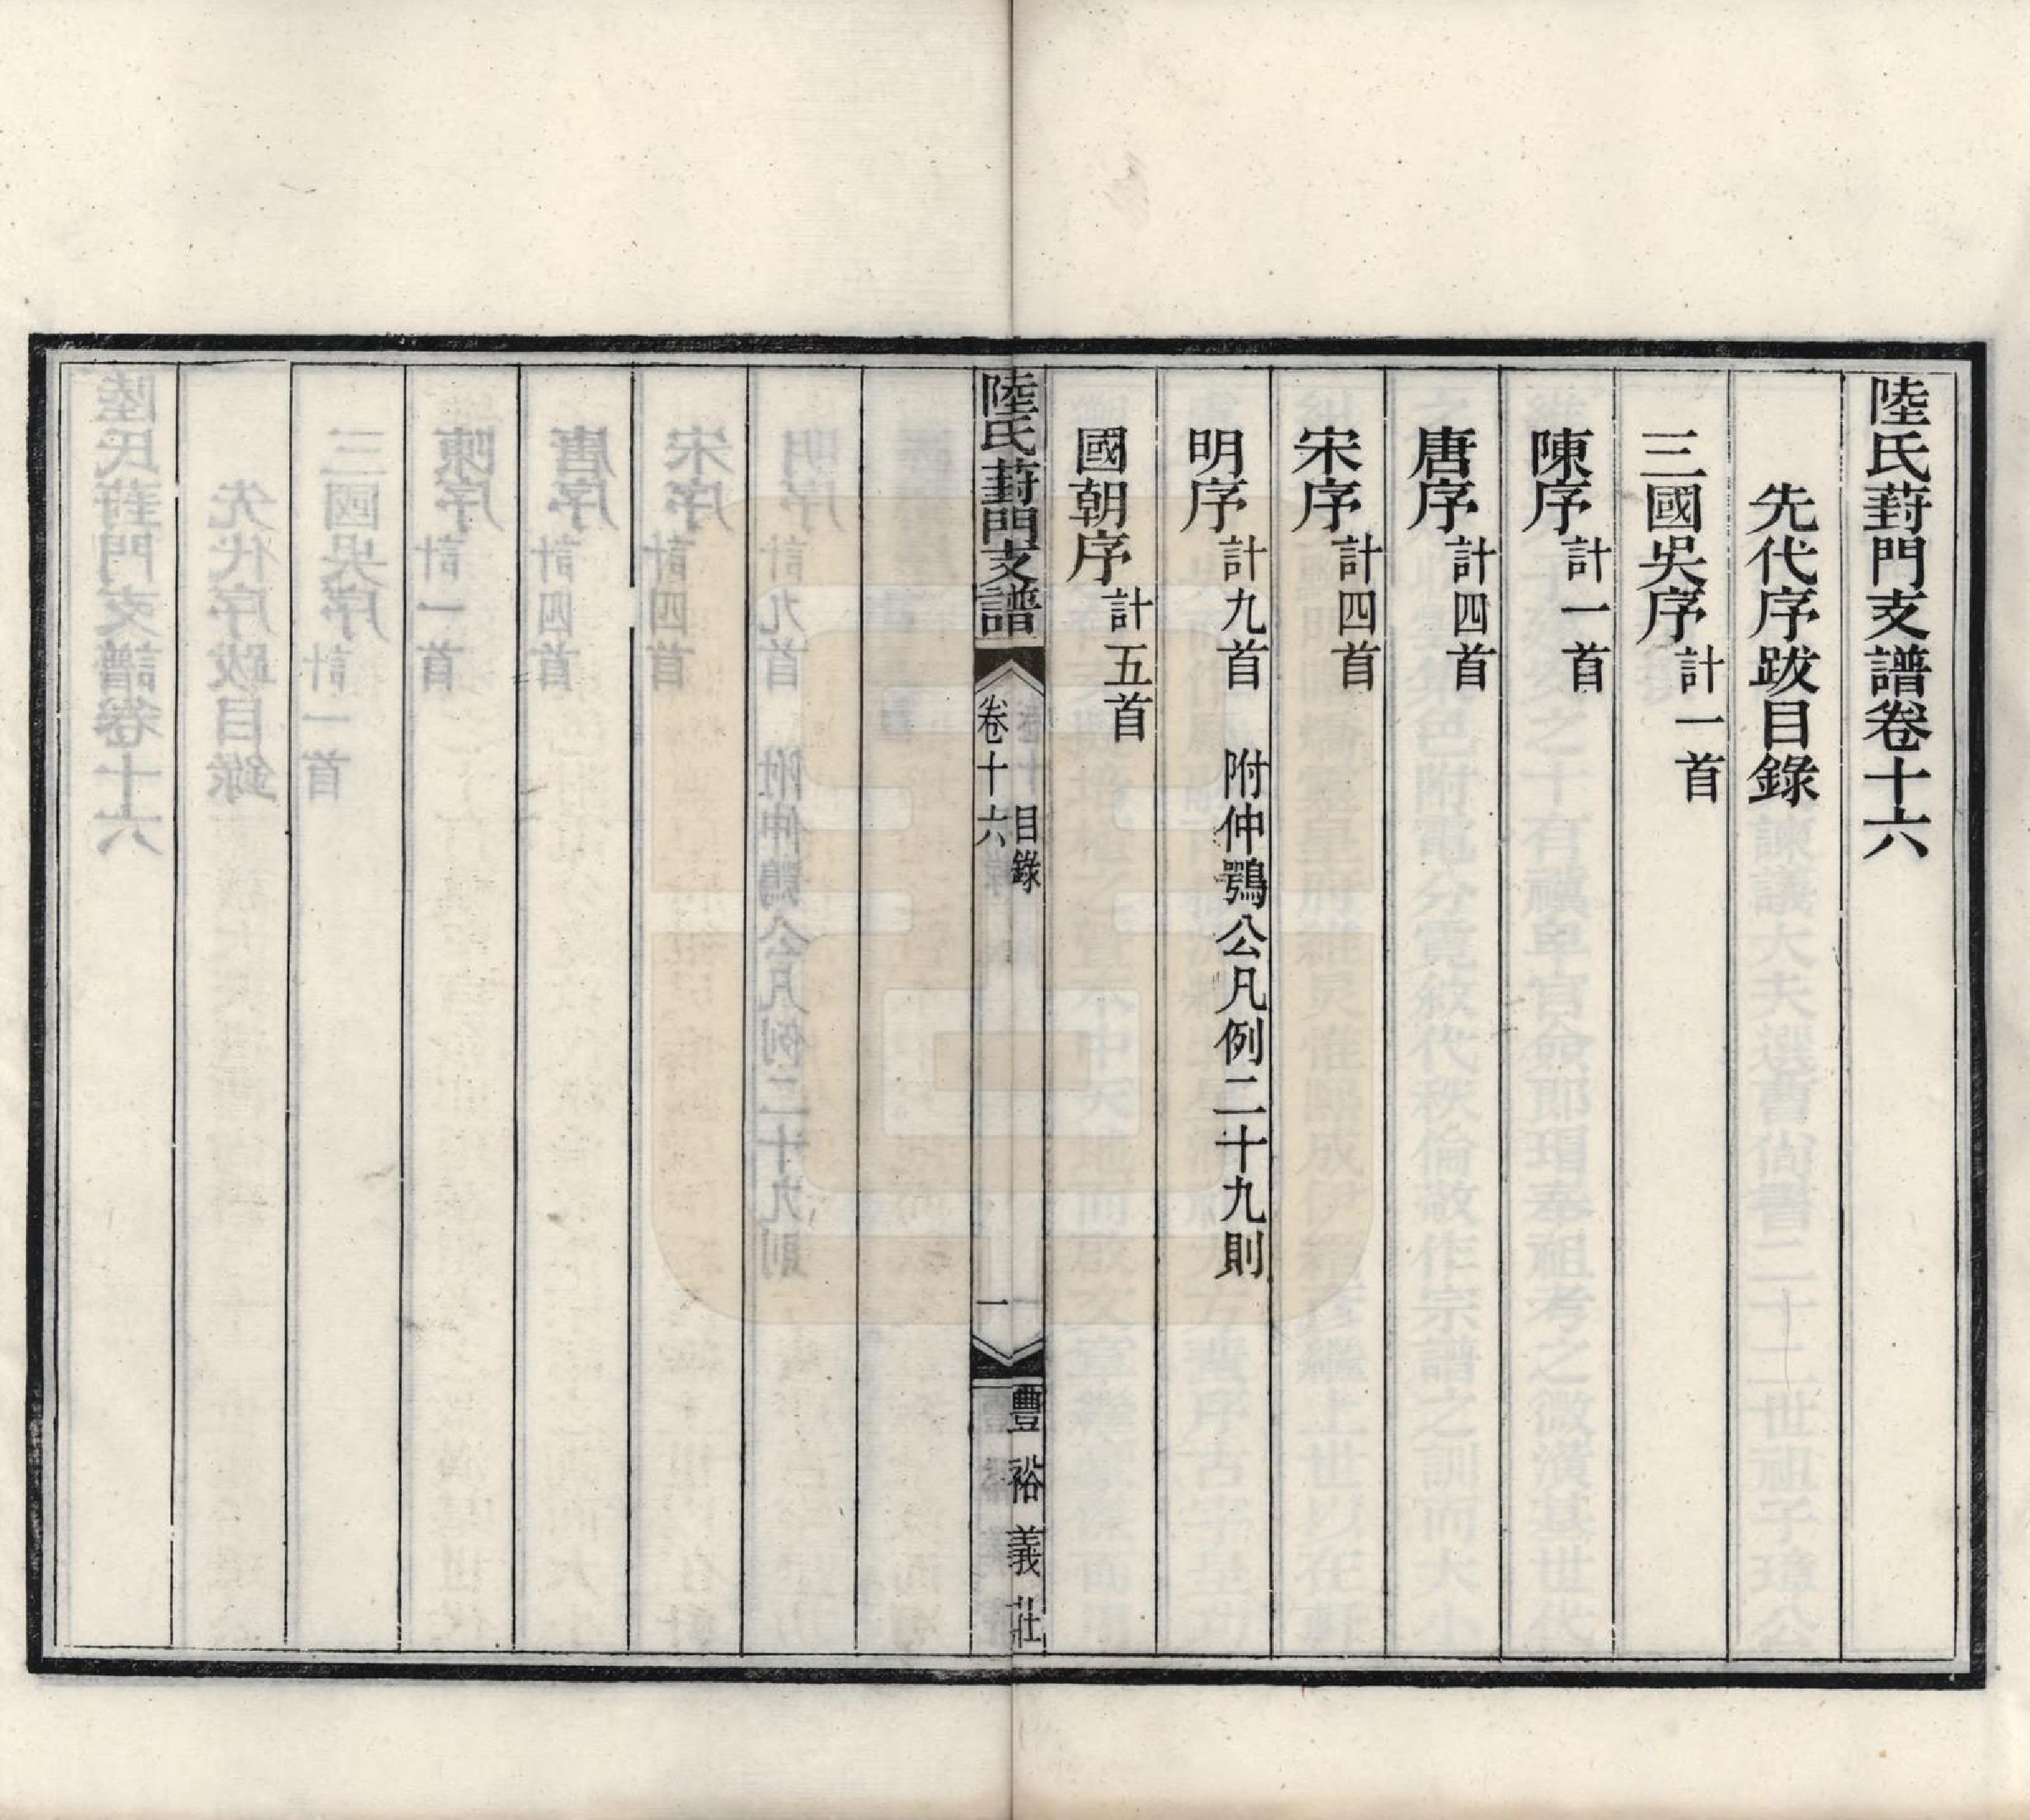 陸氏葑門支譜卷十六
先代序跋目錄
三國吳序計一首
陳序計一首
唐序計四首
宋序計四首
明序計九首 附仲鶚公凡例二十九則
國朝序計五首
陸氏葑門支譜 卷十六 目錄 一 豐裕義莊